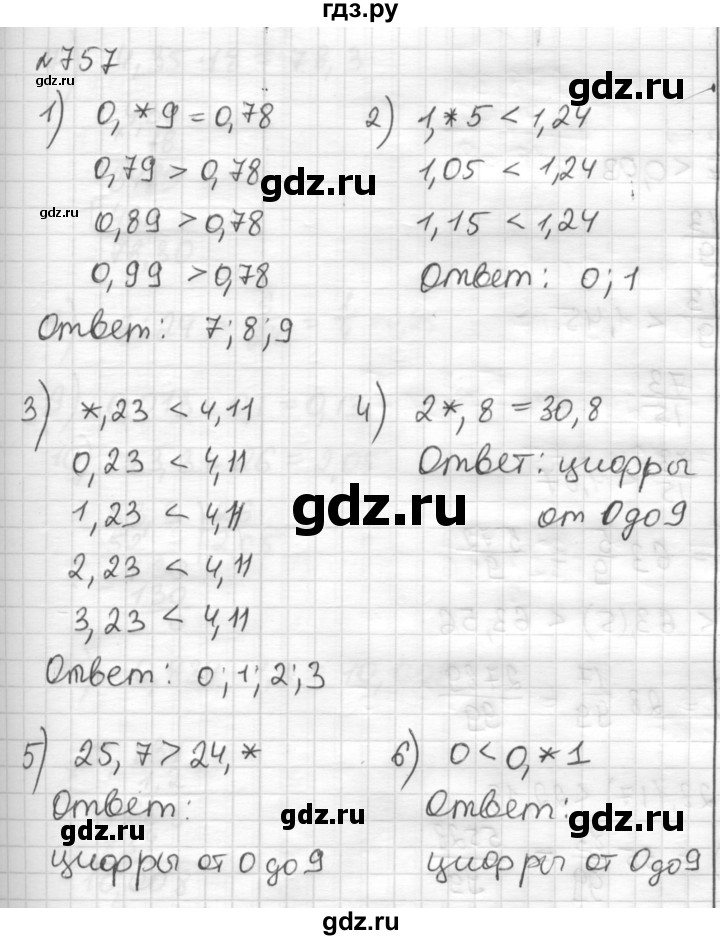 гдз.ру
№757
gdz.ru
gdz.ru
1) 0,*9 = 0,78
0,79 > 0,78
gdz.ru
gdz.ru
0,89 > 0,78
0,99 > 0,78
Ответ: 7; 8; 9
2) 1,*5 < 1,24
1,05 < 1,24
1,15 < 1,24
gdz.ru
Ответ: 0; 1
3) *,23 < 4,11
0,23 < 4,11
1,23 < 4,11
2,23 < 4,11
3,23 < 4,11
Ответ: 0; 1; 2; 3
4) 2*,8 = 30,8
Ответ: цифры
от 0 до 9
gdz.ru
5) 25,7 > 24,*
Ответ:
gdz.ru
цифры от 0 до 9
gdz.ru
6) 0 < 0,*1
Ответ:
gdz.ru
цифры от 0 до 9
gdz.ru